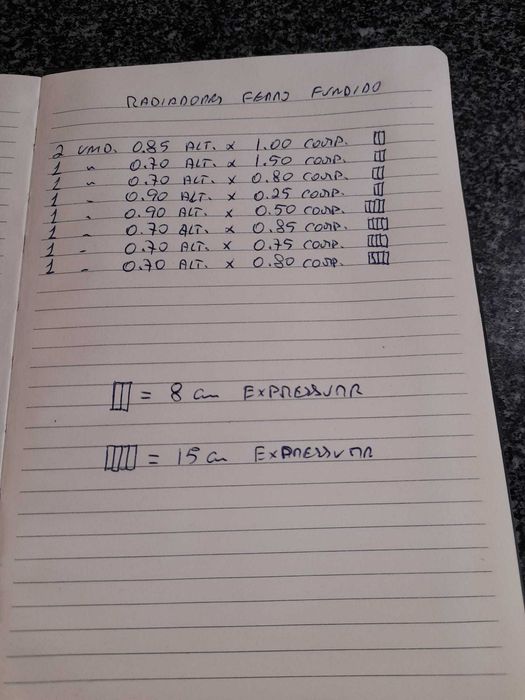 RADIADORES FERRO FUNDIDO
2 UMD. 0.85 ALT. x 1.00 COMP.
1 " 0.70 ALT. x 1.50 COMP.
1 " 0.70 ALT. x 0.80 COMP.
1 " 0.90 ALT. x 0.25 COMP.
1 " 0.90 ALT. x 0.50 COMP.
1 " 0.70 ALT. x 0.85 COMP.
1 " 0.70 ALT. x 0.75 COMP.
1 " 0.70 ALT. x 0.80 COMP.
= 8 cm EXPRESSUAR
= 15 cm EXPRESSUAR